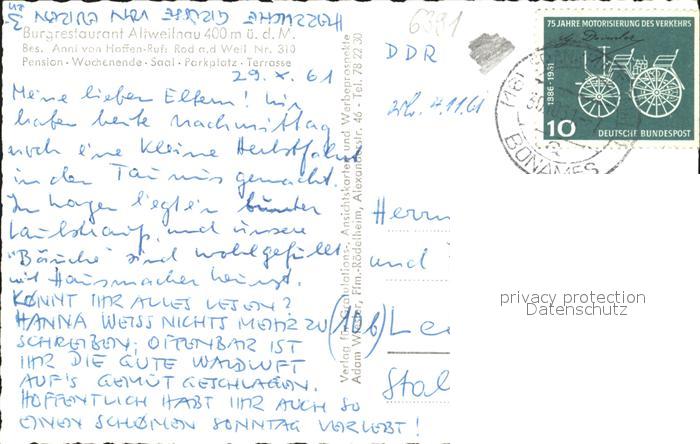 HERZLICHE GRÜSSE VON
Burgrestaurant Altweilnau 400 m ü. d. M.
Bes. Anni von Hoffen-Ruf: Rod a.d Weil Nr. 310
Pension - Wochenende - Saal - Parkplatz - Terrasse
29. X. 61
Meine lieben Eltern! Wir
haben heute Nachmittag
noch eine kleine Herbstfahrt
in den Taunus gemacht.
Im Wagen liegt ein bunter
Laubstrauß und unsere
"Bäuche" sind wohlgefüllt
mit Hausmacher Wurst.
KÖNNT IHR ALLES LESEN?
HANNA WEISS NICHTS MEHR ZU
SCHREIBEN; OFFENBAR IST
IHR DIE GUTE WALDLUFT
AUF'S GEMÜT GESCHLAGEN.
HOFFENTLICH HABT IHR AUCH SO
EINEN SCHÖNEN SONNTAG VERLEBT!
Verlag für Gratulations-, Ansichtskarten und Werbeprospekte
Adam, Ffm.-Rödelheim, Alexanderstr. 46 - Tel. 78 22 30
6391
DDR
4.11.61
75 JAHRE MOTORISIERUNG DES VERKEHRS
G. Daimler
1886-1961
10
DEUTSCHE BUNDESPOST
BONAMES
Herrn
und
(10b) Le
Stal
privacy protection
Datenschutz